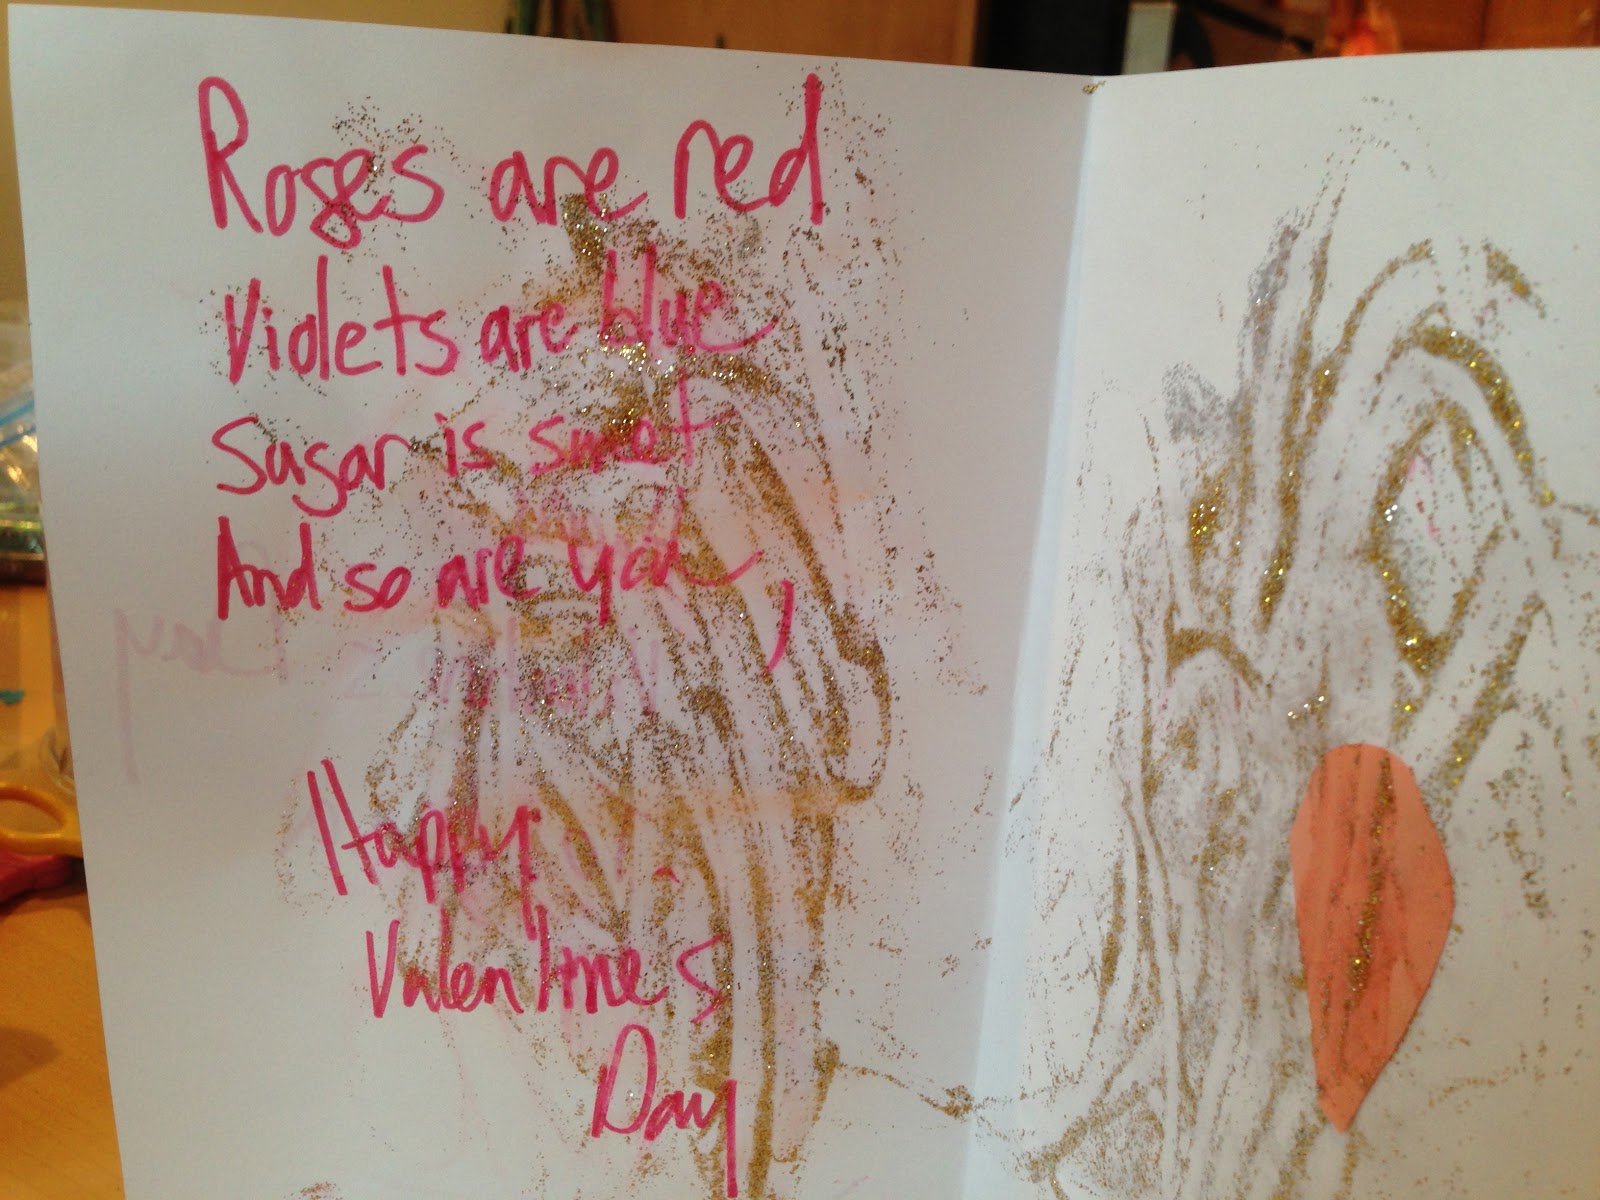 Roses are red
Violets are blue
Sugar is sweet
And so are you,
Happy
Valentines
Day